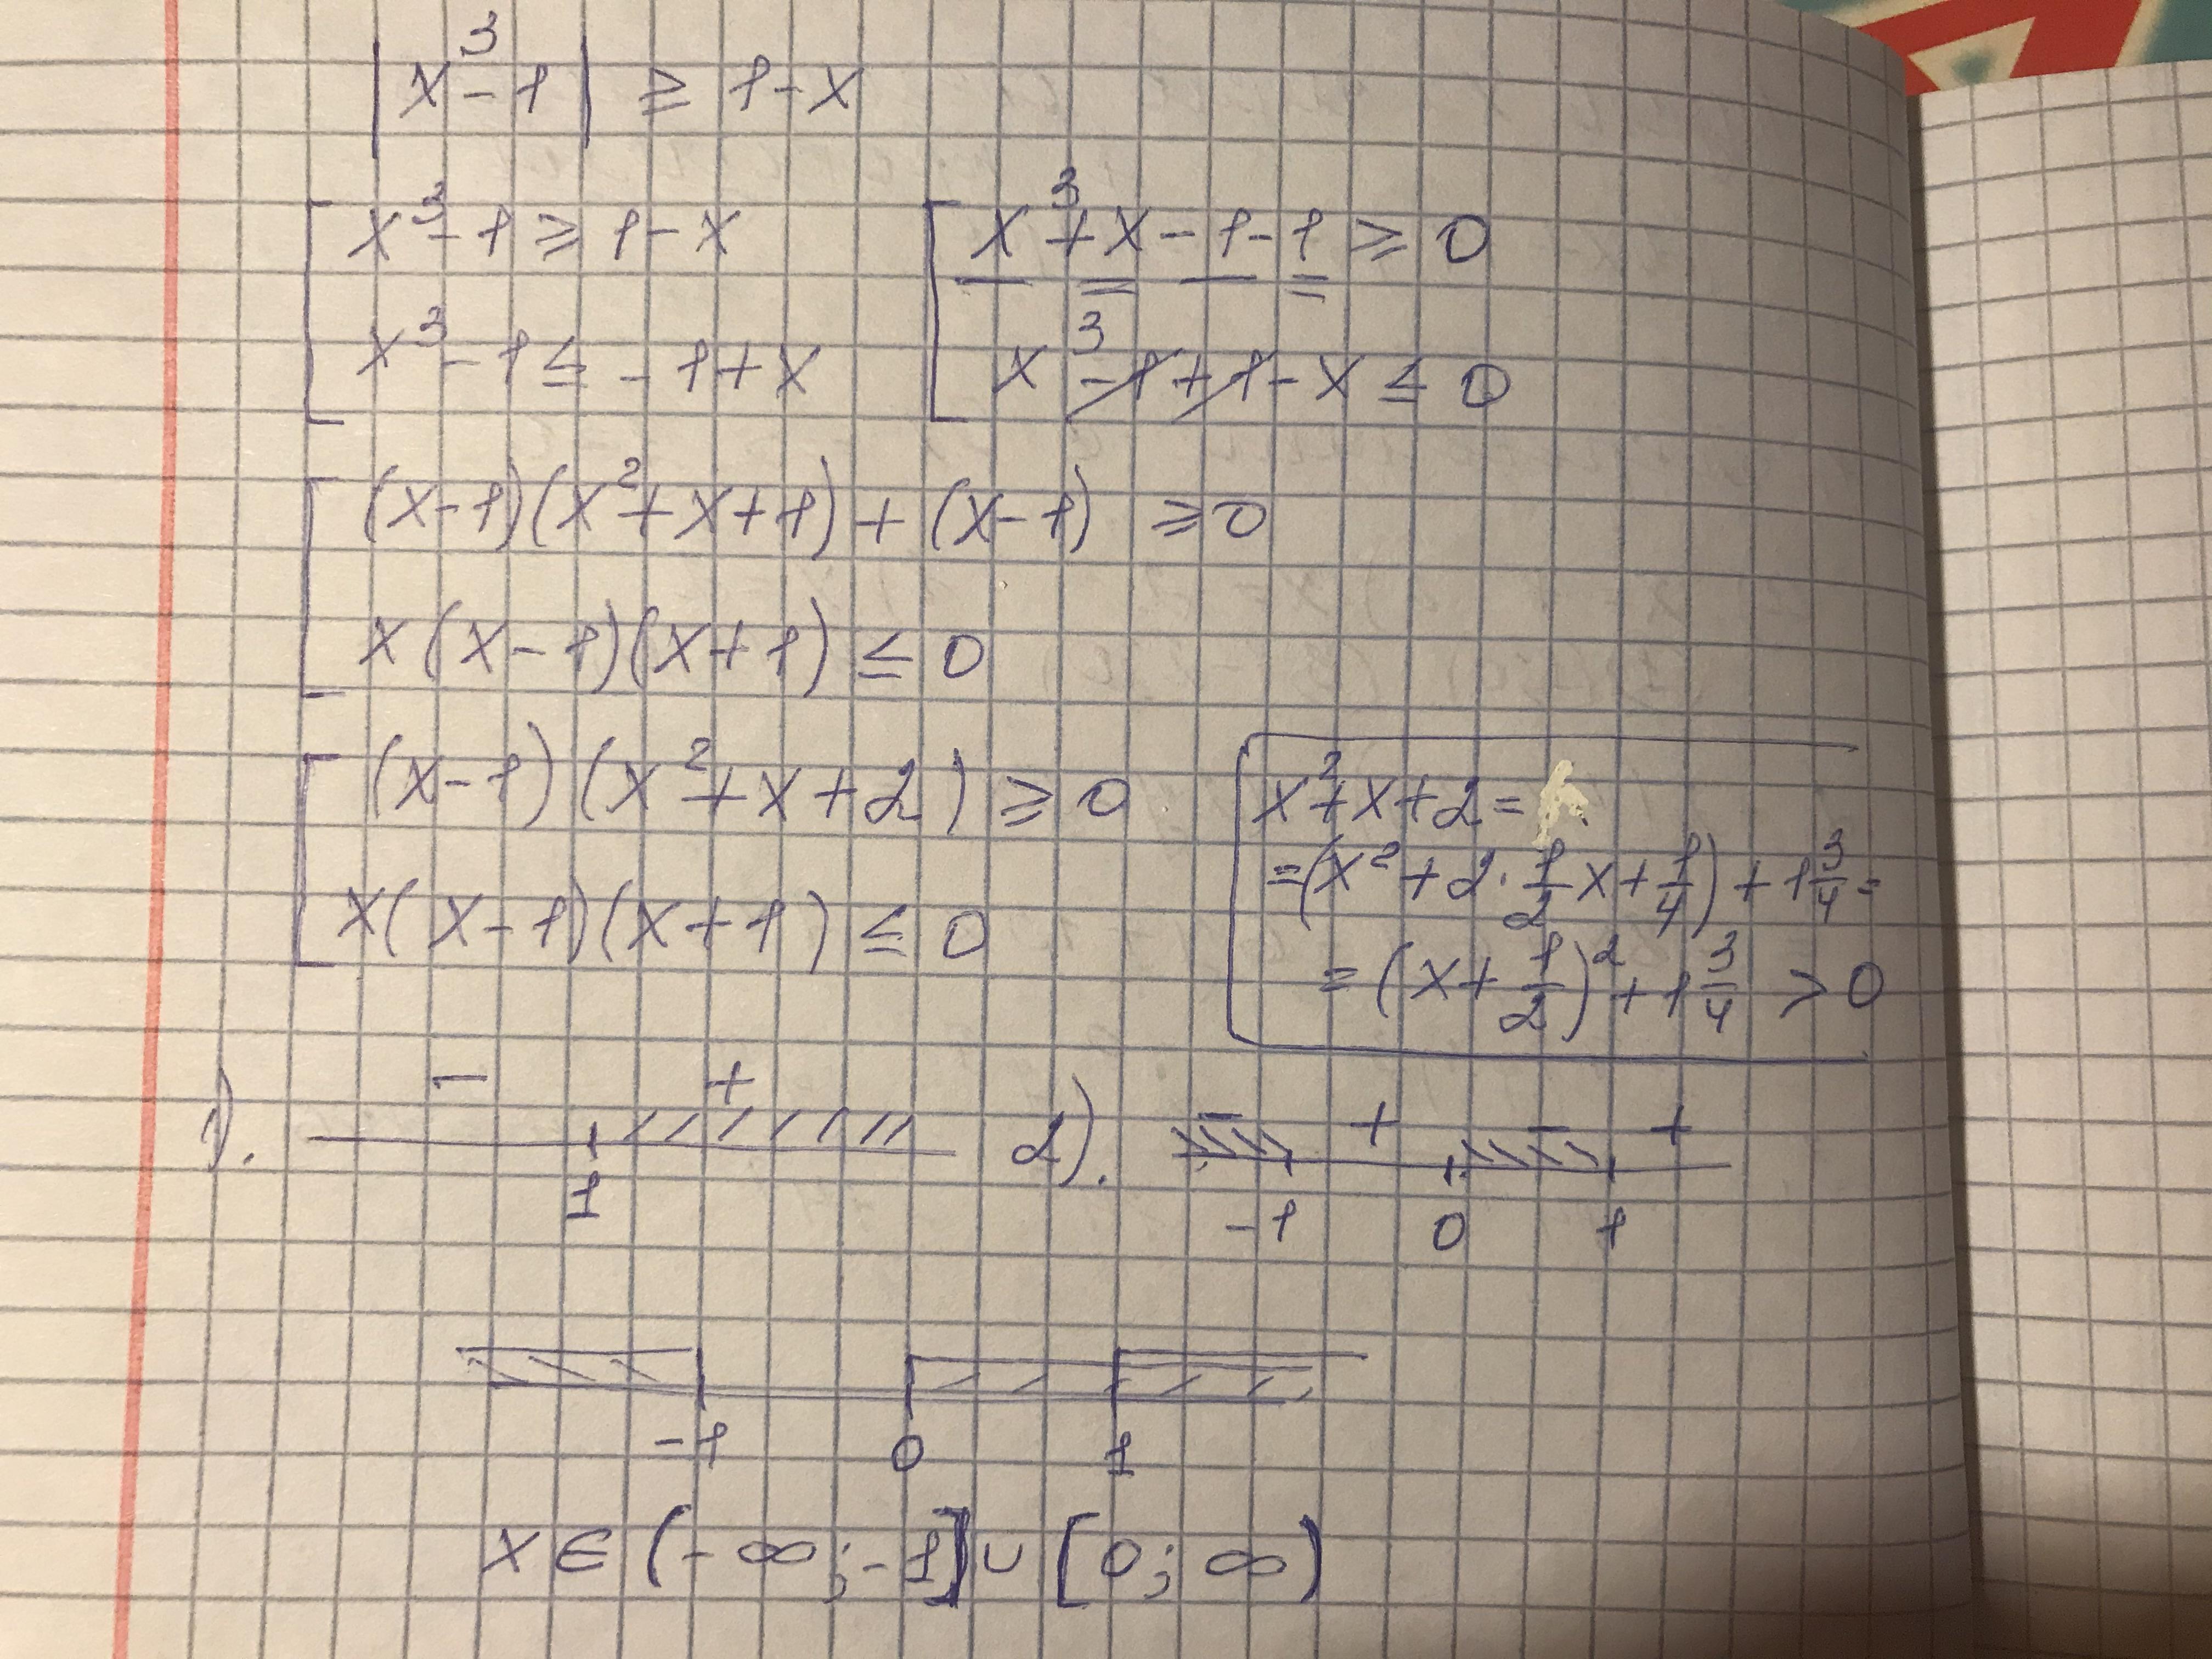 |x³-1| ≥ 1-x
[ x³-1 ≥ 1-x [ x³+x-1-1 ≥ 0
x³-1 ≤ -1+x x³-1+1-x ≤ 0
[ (x-1)(x²+x+1)+(x-1) ≥ 0
x(x-1)(x+1) ≤ 0
[ (x-1)(x²+x+2) ≥ 0
x(x-1)(x+1) ≤ 0
x²+x+2 =
=(x²+2·1/2x+1/4)+1 3/4=
=(x+1/2)²+1 3/4 > 0
1). - +
1
2). - + - +
-1 0 1
-1 0 1
x∈(-∞;-1]∪[0;∞)